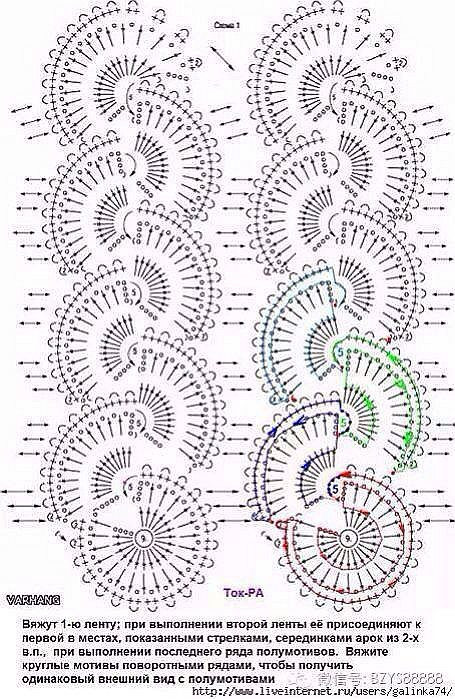 Схема 1
5
5
5
5
5
5
5
9
9
Ток-РА
VARHANG
Вяжут 1-ю ленту; при выполнении второй ленты её присоединяют к
первой в местах, показанными стрелками, серединками арок из 2-х
в.п., при выполнении последнего ряда полумотивов. Вяжите
круглые мотивы поворотными рядами, чтобы получить
одинаковый внешний вид с полумотивами
微信号: BZYS88888
http://www.liveinternet.ru/users/galinka74/